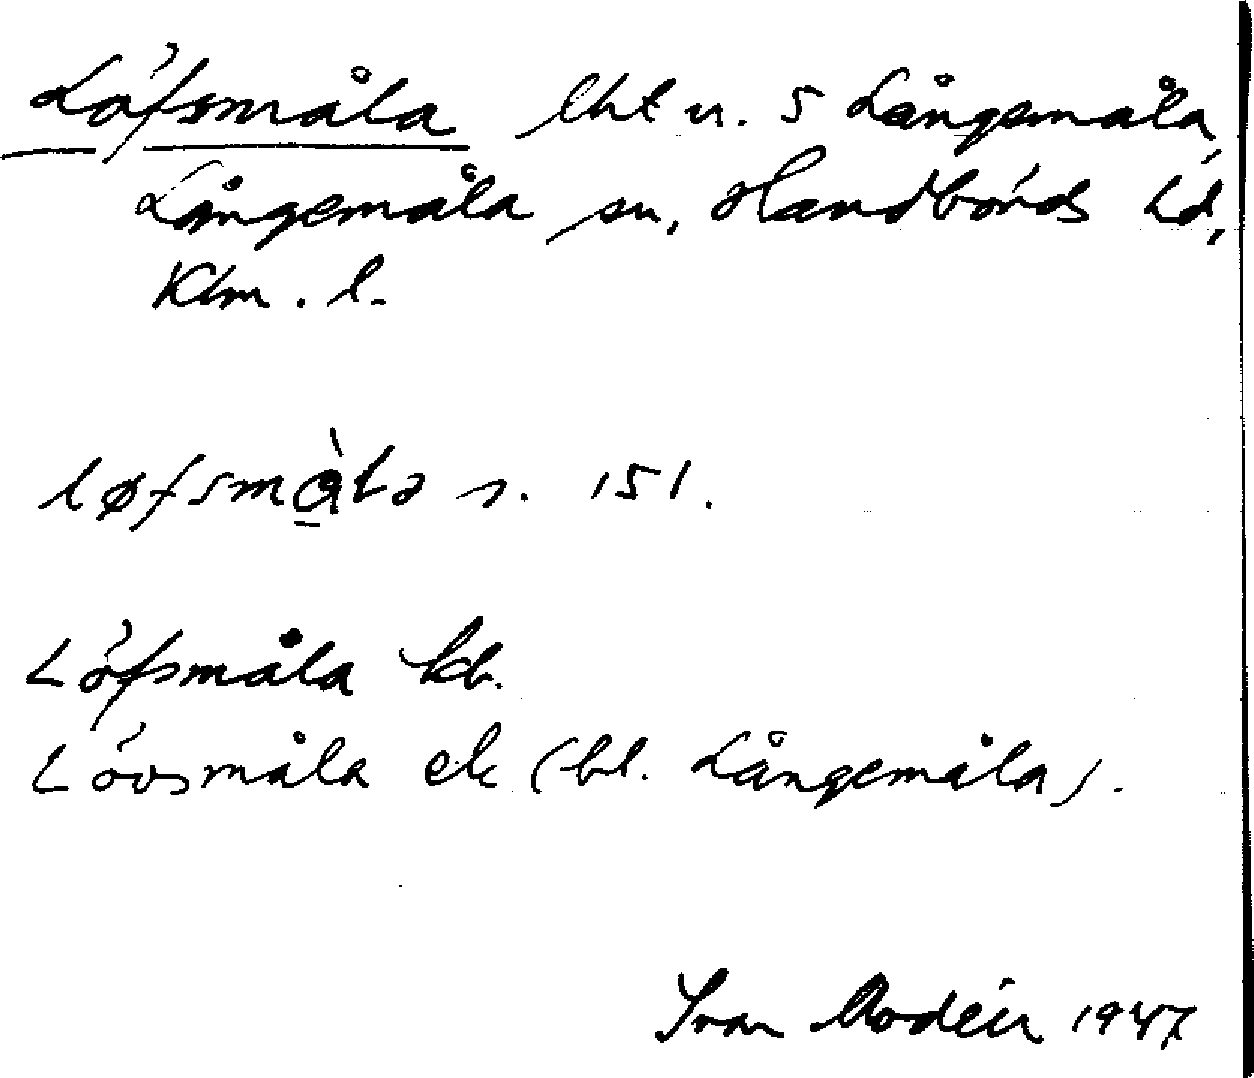 Löfsmåla lht u. 5 Långemåla,
Långemåla sn, Handbörds hd,
Klm. l.
løfsmàla s. 151.
Löfsmåla kb.
Lövsmåla ek (bl. Långemåla).
Ivar Modéer 1947